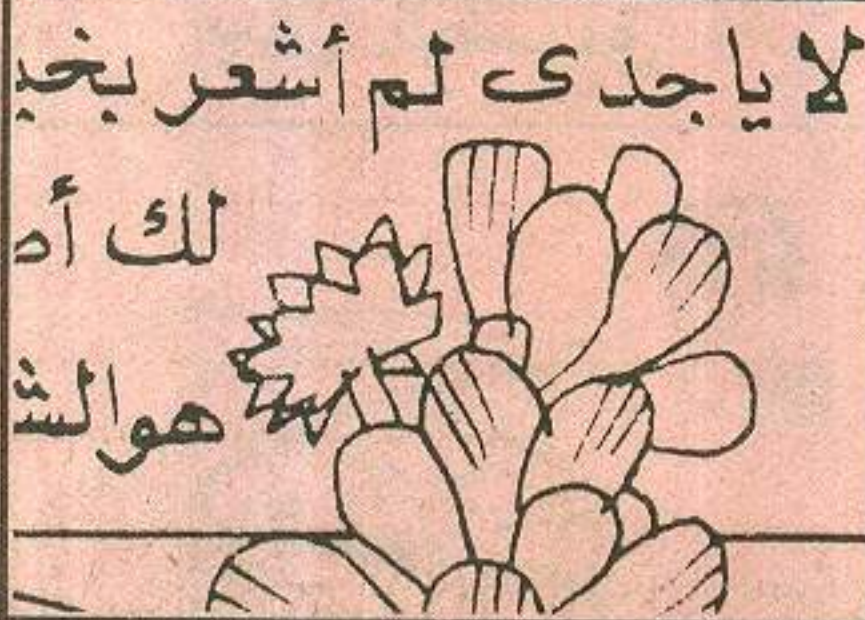 لا ياجدى لم أشعر بخيـ
لك أ
هو الشـ